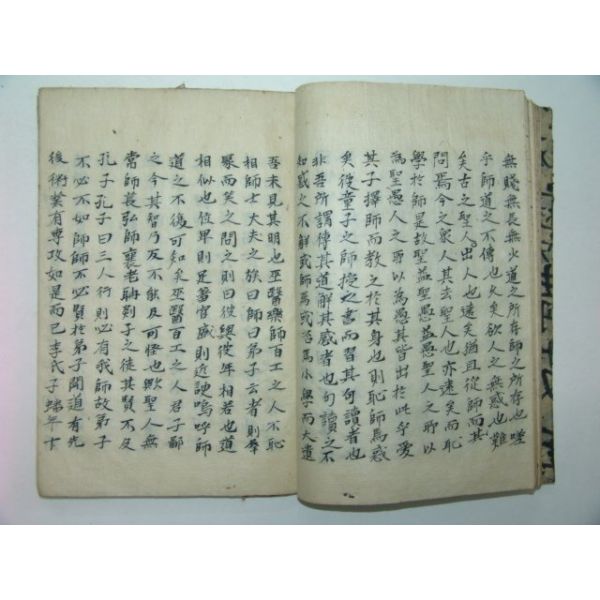 無賤無長無少道之所存師之所存也嗟
乎師道之不傳也久矣欲人之無惑也難
矣古之聖人出人也遠矣猶且從師而其
問焉今之衆人其去聖人也亦遠矣而恥
學於師是故聖益聖愚益愚聖人之所以
爲聖愚人之所以爲愚其皆出於此乎愛
其子擇師而教之於其身也則恥師焉惑
矣彼童子之師授之書而習其句讀者也
非吾所謂傳其道解其惑者也句讀之不
知惑之不解或師焉或否焉小學而大遺
吾未見其明也巫醫樂師百工之人不恥
相師士大夫之族曰師曰弟子云者則羣
聚而笑之問之則曰彼與彼年相若也道
相似也位卑則足羞官盛則近諛嗚呼師
道之不復可知矣巫醫百工之人君子鄙
之今其智乃反不能及可怪也歟聖人無
常師萇弘師襄老聃郯子之徒其賢不及
孔子孔子曰三人行則必有我師故弟子
不必不如師師不必賢於弟子聞道有先
後術業有專攻如是而已李氏子蟠年十